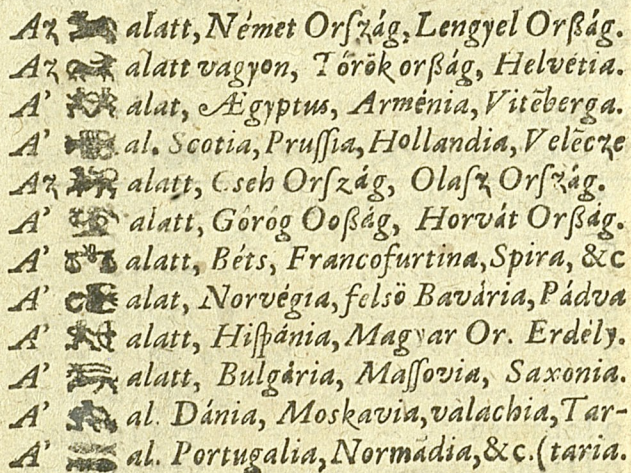 Az alatt, Német Orſzág, Lengyel Orßág.
Az alatt vagyon, Tőrök orßág, Helvetia.
A' alat, Ægyptus, Arménia, Vitēberga.
A' al. Scotia, Pruſſia, Hollandia, Velēcze
Az alatt, Cseh Orſzág, Olaſz Orſzág.
A' alatt, Gőrőg Ooßág, Horvát Orßág.
A' alatt, Béts, Francofurtina, Spira, &c
A' alat, Norvégia, felsö Bavária, Pádva
A' alatt, Hiſpánia, Magyar Or. Erdély.
A' alatt, Bulgária, Maſſovia, Saxonia.
A' al. Dánia, Moskavia, valachia, Tar-
A' al. Portugalia, Normādia, &c. (taria.